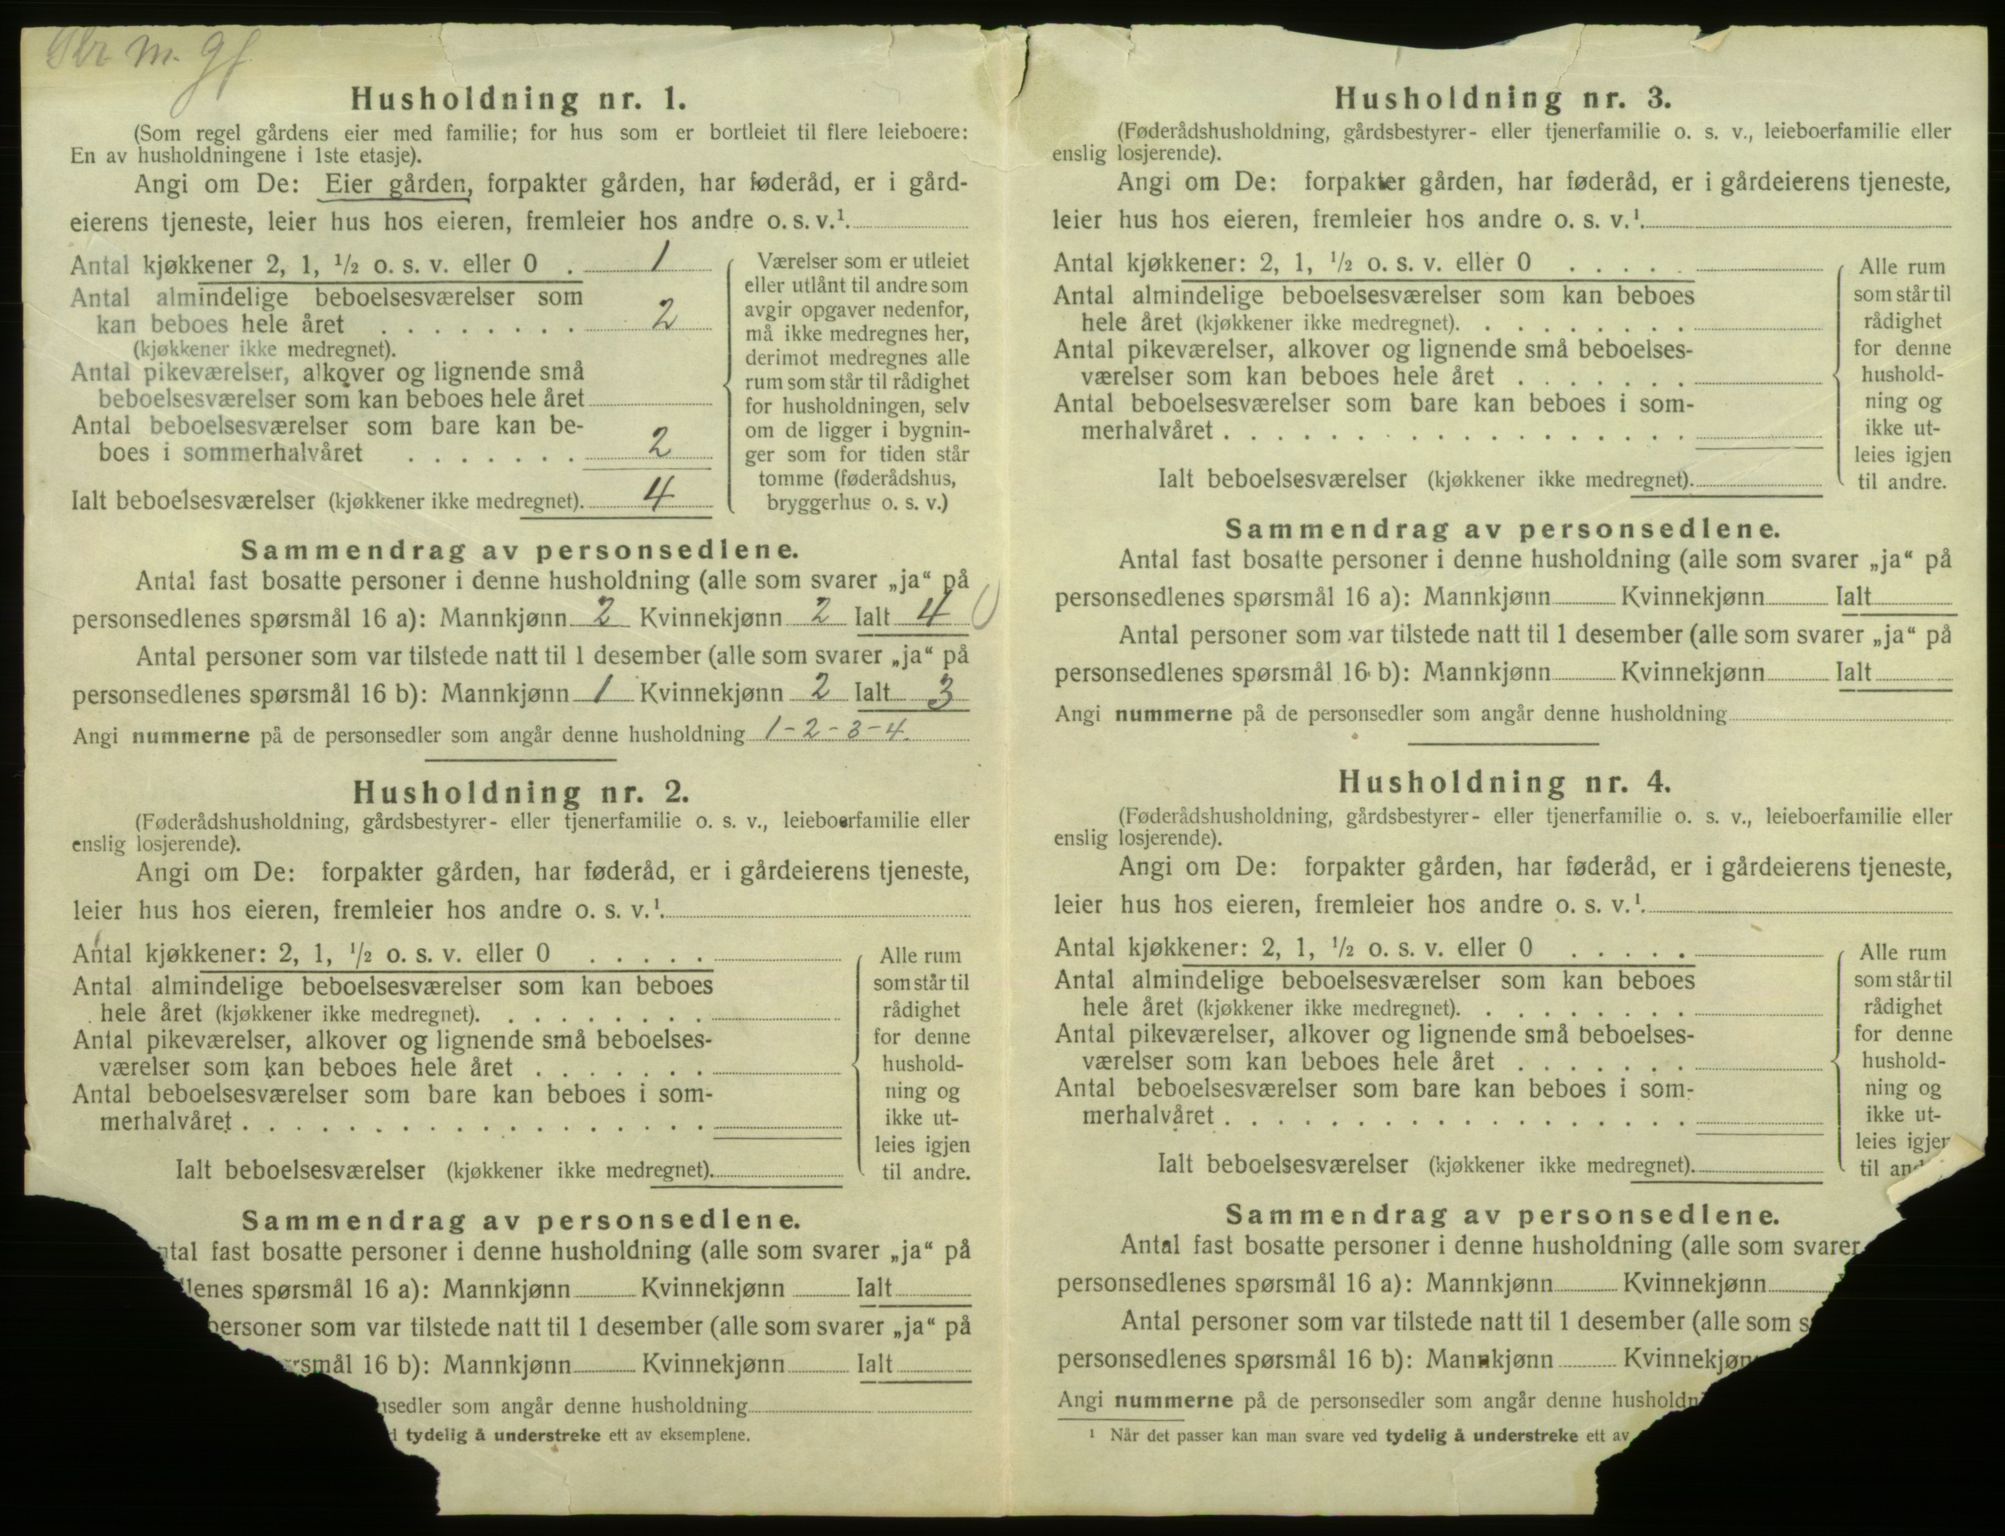 m. gf
Husholdning nr. 1.
(Som regel gårdens eier med familie; for hus som er bortleiet til flere leieboere:
En av husholdningene i 1ste etasje).
Angi om De: Eier gården, forpakter gården, har føderåd, er i gård-
eierens tjeneste, leier hus hos eieren, fremleier hos andre o. s. v.¹
Antal kjøkkener 2, 1, ½ o. s. v. eller 0 . 1
Antal almindelige beboelsesværelser som
kan beboes hele året . . . . . . . . 2
(kjøkkener ikke medregnet).
Antal pikeværelser, alkover og lignende små
beboelsesværelser som kan beboes hele året
Antal beboelsesværelser som bare kan be-
boes i sommerhalvåret . . . . . . . 2
Ialt beboelsesværelser (kjøkkener ikke medregnet). 4
Værelser som er utleiet
eller utlånt til andre som
avgir opgaver nedenfor,
må ikke medregnes her,
derimot medregnes alle
rum som står til rådighet
for husholdningen, selv
om de ligger i bygnin-
ger som for tiden står
tomme (føderådshus,
bryggerhus o. s. v.)
Sammendrag av personsedlene.
Antal fast bosatte personer i denne husholdning (alle som svarer „ja“ på
personsedlenes spørsmål 16 a): Mannkjønn 2 Kvinnekjønn 2 Ialt 4 0
Antal personer som var tilstede natt til 1 desember (alle som svarer „ja“ på
personsedlenes spørsmål 16 b): Mannkjønn 1 Kvinnekjønn 2 Ialt 3
Angi nummerne på de personsedler som angår denne husholdning 1-2-3-4.
Husholdning nr. 2.
(Føderådshusholdning, gårdsbestyrer- eller tjenerfamilie o. s. v., leieboerfamilie eller
enslig losjerende).
Angi om De: forpakter gården, har føderåd, er i gårdeierens tjeneste,
leier hus hos eieren, fremleier hos andre o. s. v.¹
Antal kjøkkener: 2, 1, ½ o. s. v. eller 0 . . . . .
Antal almindelige beboelsesværelser som kan beboes
hele året (kjøkkener ikke medregnet). . . . . . . . .
Antal pikeværelser, alkover og lignende små beboelses-
værelser som kan beboes hele året . . . . . . .
Antal beboelsesværelser som bare kan beboes i som-
merhalvåret . . . . . . . . . . . . . . . . . .
Ialt beboelsesværelser (kjøkkener ikke medregnet).
Alle rum
som står til
rådighet
for denne
hushold-
ning og
ikke ut-
leies igjen
til andre.
Sammendrag av personsedlene.
ntal fast bosatte personer i denne husholdning (alle som svarer „ja“ på
lenes spørsmål 16 a): Mannkjønn Kvinnekjønn Ialt
personer som var tilstede natt til 1 desember (alle som svarer „ja“ på
rsmål 16 b): Mannkjønn Kvinnekjønn Ialt
nsedler som angår denne husholdning
d tydelig å understreke ett av eksemplene.
Husholdning nr. 3.
(Føderådshusholdning, gårdsbestyrer- eller tjenerfamilie o. s. v., leieboerfamilie eller
enslig losjerende).
Angi om De: forpakter gården, har føderåd, er i gårdeierens tjeneste,
leier hus hos eieren, fremleier hos andre o. s. v.¹
Antal kjøkkener: 2, 1, ½ o. s. v. eller 0 . . . . .
Antal almindelige beboelsesværelser som kan beboes
hele året (kjøkkener ikke medregnet). . . . . . . . .
Antal pikeværelser, alkover og lignende små beboelses-
værelser som kan beboes hele året . . . . . . .
Antal beboelsesværelser som bare kan beboes i som-
merhalvåret . . . . . . . . . . . . . . . . . .
Ialt beboelsesværelser (kjøkkener ikke medregnet).
Alle rum
som står til
rådighet
for denne
hushold-
ning og
ikke ut-
leies igjen
til andre.
Sammendrag av personsedlene.
Antal fast bosatte personer i denne husholdning (alle som svarer „ja“ på
personsedlenes spørsmål 16 a): Mannkjønn Kvinnekjønn Ialt
Antal personer som var tilstede natt til 1 desember (alle som svarer „ja“ på
personsedlenes spørsmål 16 b): Mannkjønn Kvinnekjønn Ialt
Angi nummerne på de personsedler som angår denne husholdning
Husholdning nr. 4.
(Føderådshusholdning, gårdsbestyrer- eller tjenerfamilie o. s. v., leieboerfamilie eller
enslig losjerende).
Angi om De: forpakter gården, har føderåd, er i gårdeierens tjeneste,
leier hus hos eieren, fremleier hos andre o. s. v.¹
Antal kjøkkener: 2, 1, ½ o. s. v. eller 0 . . . . .
Antal almindelige beboelsesværelser som kan beboes
hele året (kjøkkener ikke medregnet). . . . . . . . .
Antal pikeværelser, alkover og lignende små beboelses-
værelser som kan beboes hele året . . . . . . .
Antal beboelsesværelser som bare kan beboes i som-
merhalvåret . . . . . . . . . . . . . . . . . .
Ialt beboelsesværelser (kjøkkener ikke medregnet).
Alle rum
som står til
rådighet
for denne
hushold-
ning og
ikke ut-
leies igjen
til and
Sammendrag av personsedlene.
Antal fast bosatte personer i denne husholdning (alle som svarer
personsedlenes spørsmål 16 a): Mannkjønn Kvinnekjønn
Antal personer som var tilstede natt til 1 desember (alle som s
personsedlenes spørsmål 16 b): Mannkjønn Kvinnekjøn
Angi nummerne på de personsedler som angår denne husholdn
¹ Når det passer kan man svare ved tydelig å understreke ett av